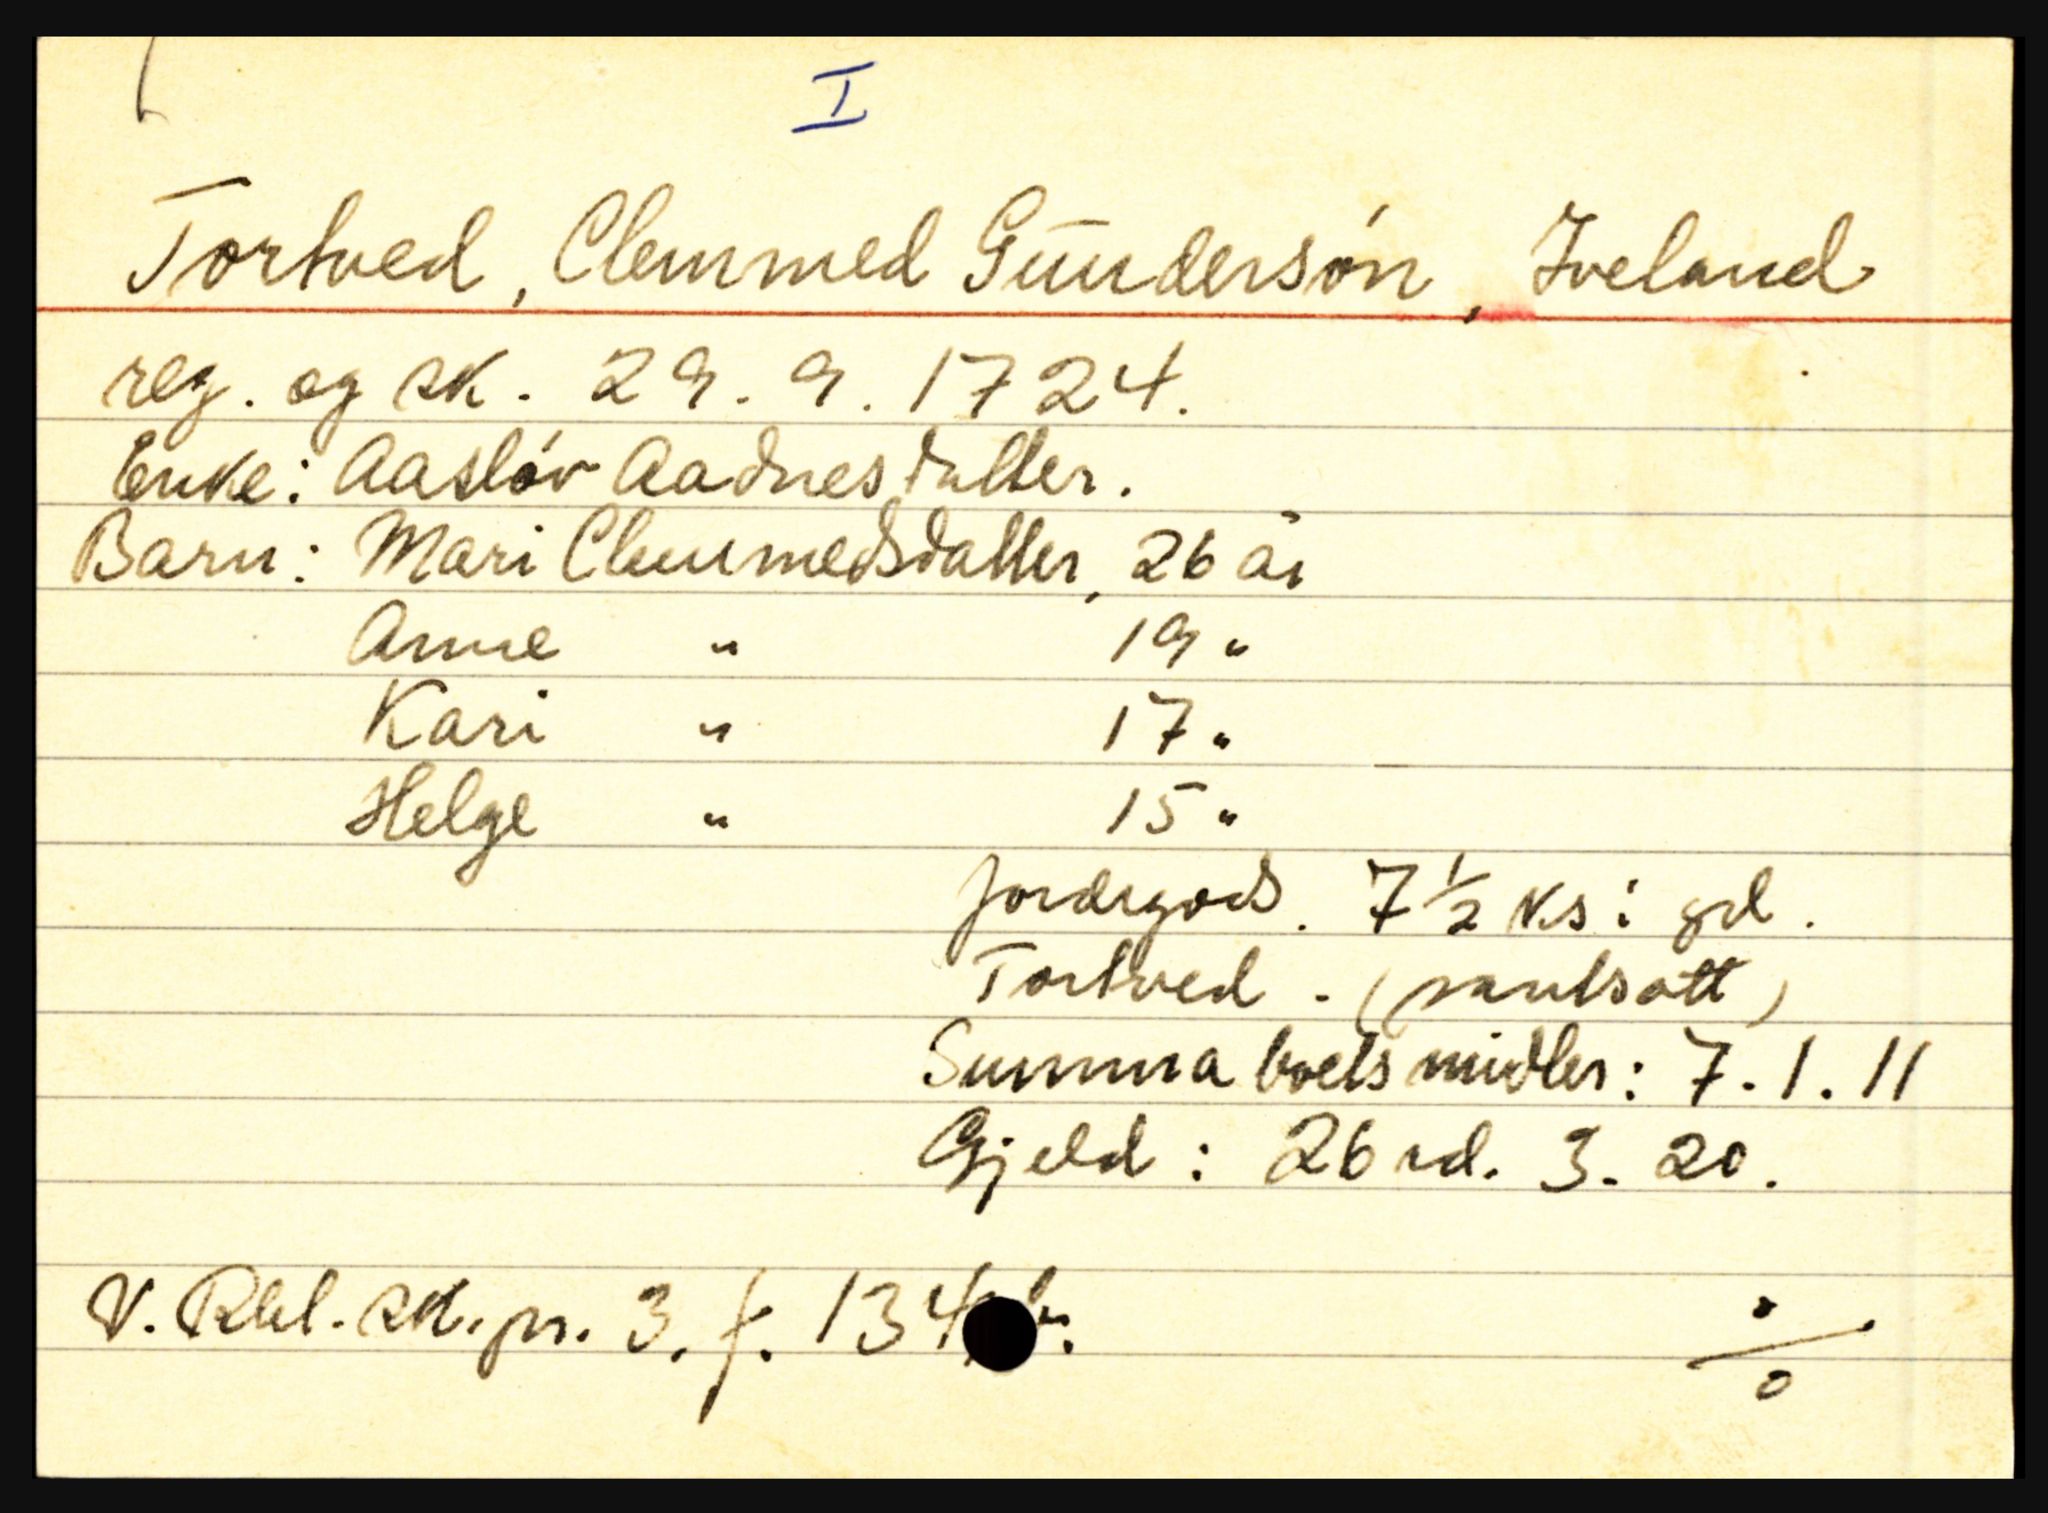 I
Tortved, Clemmed Gundersøn, Iveland
reg. og sk. 29. 9. 1724.
Enke: Aasløv Aadnesdatter.
Barn: Mari Clemmedsdatter, 26 år
Anne " 19 "
Kari " 17 "
Helge " 15 "
jordegods. 7 1/2 ks i gd.
Tortved. (pantsatt)
Summa boets midler: 7. 1. 11
Gjeld: 26 rd. 3. 20.
V. Rbl. sk. pr. 3. f. 134